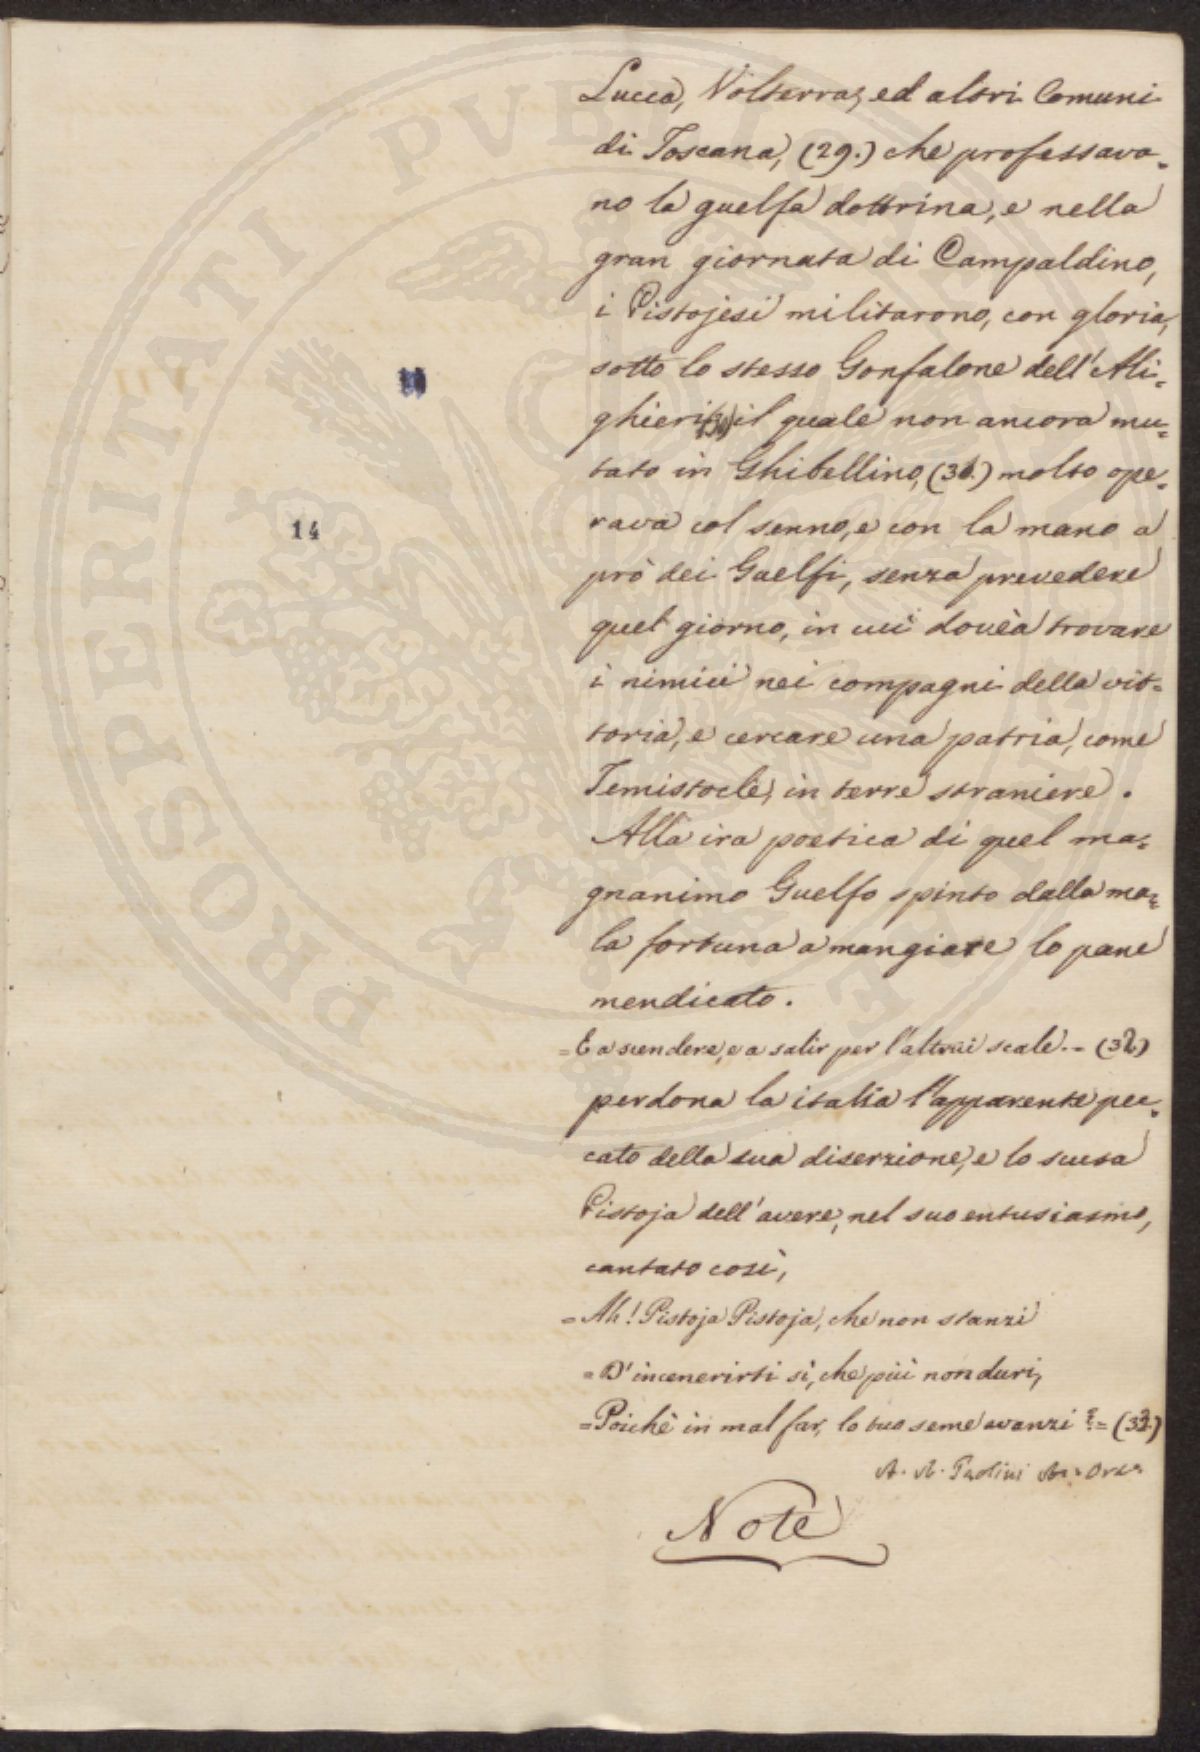 Lucca, Volterra, ed altri Comuni
di Toscana, (29.) che professava=
no la guelfa dottrina, e nella
gran giornata di Campaldino,
i Pistojesi militarono, con gloria,
sotto lo stesso Gonfalone dell'Ali=
ghieri (30) il quale non ancora mu=
tato in Ghibellino, (31.) molto ope=
rava col senno, e con la mano a
prò dei Guelfi, senza prevedere
quel giorno, in cui dovea trovare
i nimici nei compagni della vit=
toria, e cercare una patria, come
Temistocle, in terre straniere.
Alla ira poetica di quel ma=
gnanimo Guelfo spinto dalla ma=
la fortuna a mangiare lo pane
mendicato.
=E a scendere, e a salir per l'altrui scale.= (32)
perdona la italia l'apparente pec=
cato della sua diserzione, e lo scusa
Pistoja dell'avere, nel suo entusiasmo,
cantato così,
=Ah! Pistoja Pistoja, che non stanzi
=D'incenerirti sì, che più non duri,
=Poichè in mal far, lo tuo seme avanzi?= (33.)
A. A. Paolini
Note
14
PROSPERITATI PVBLICAE